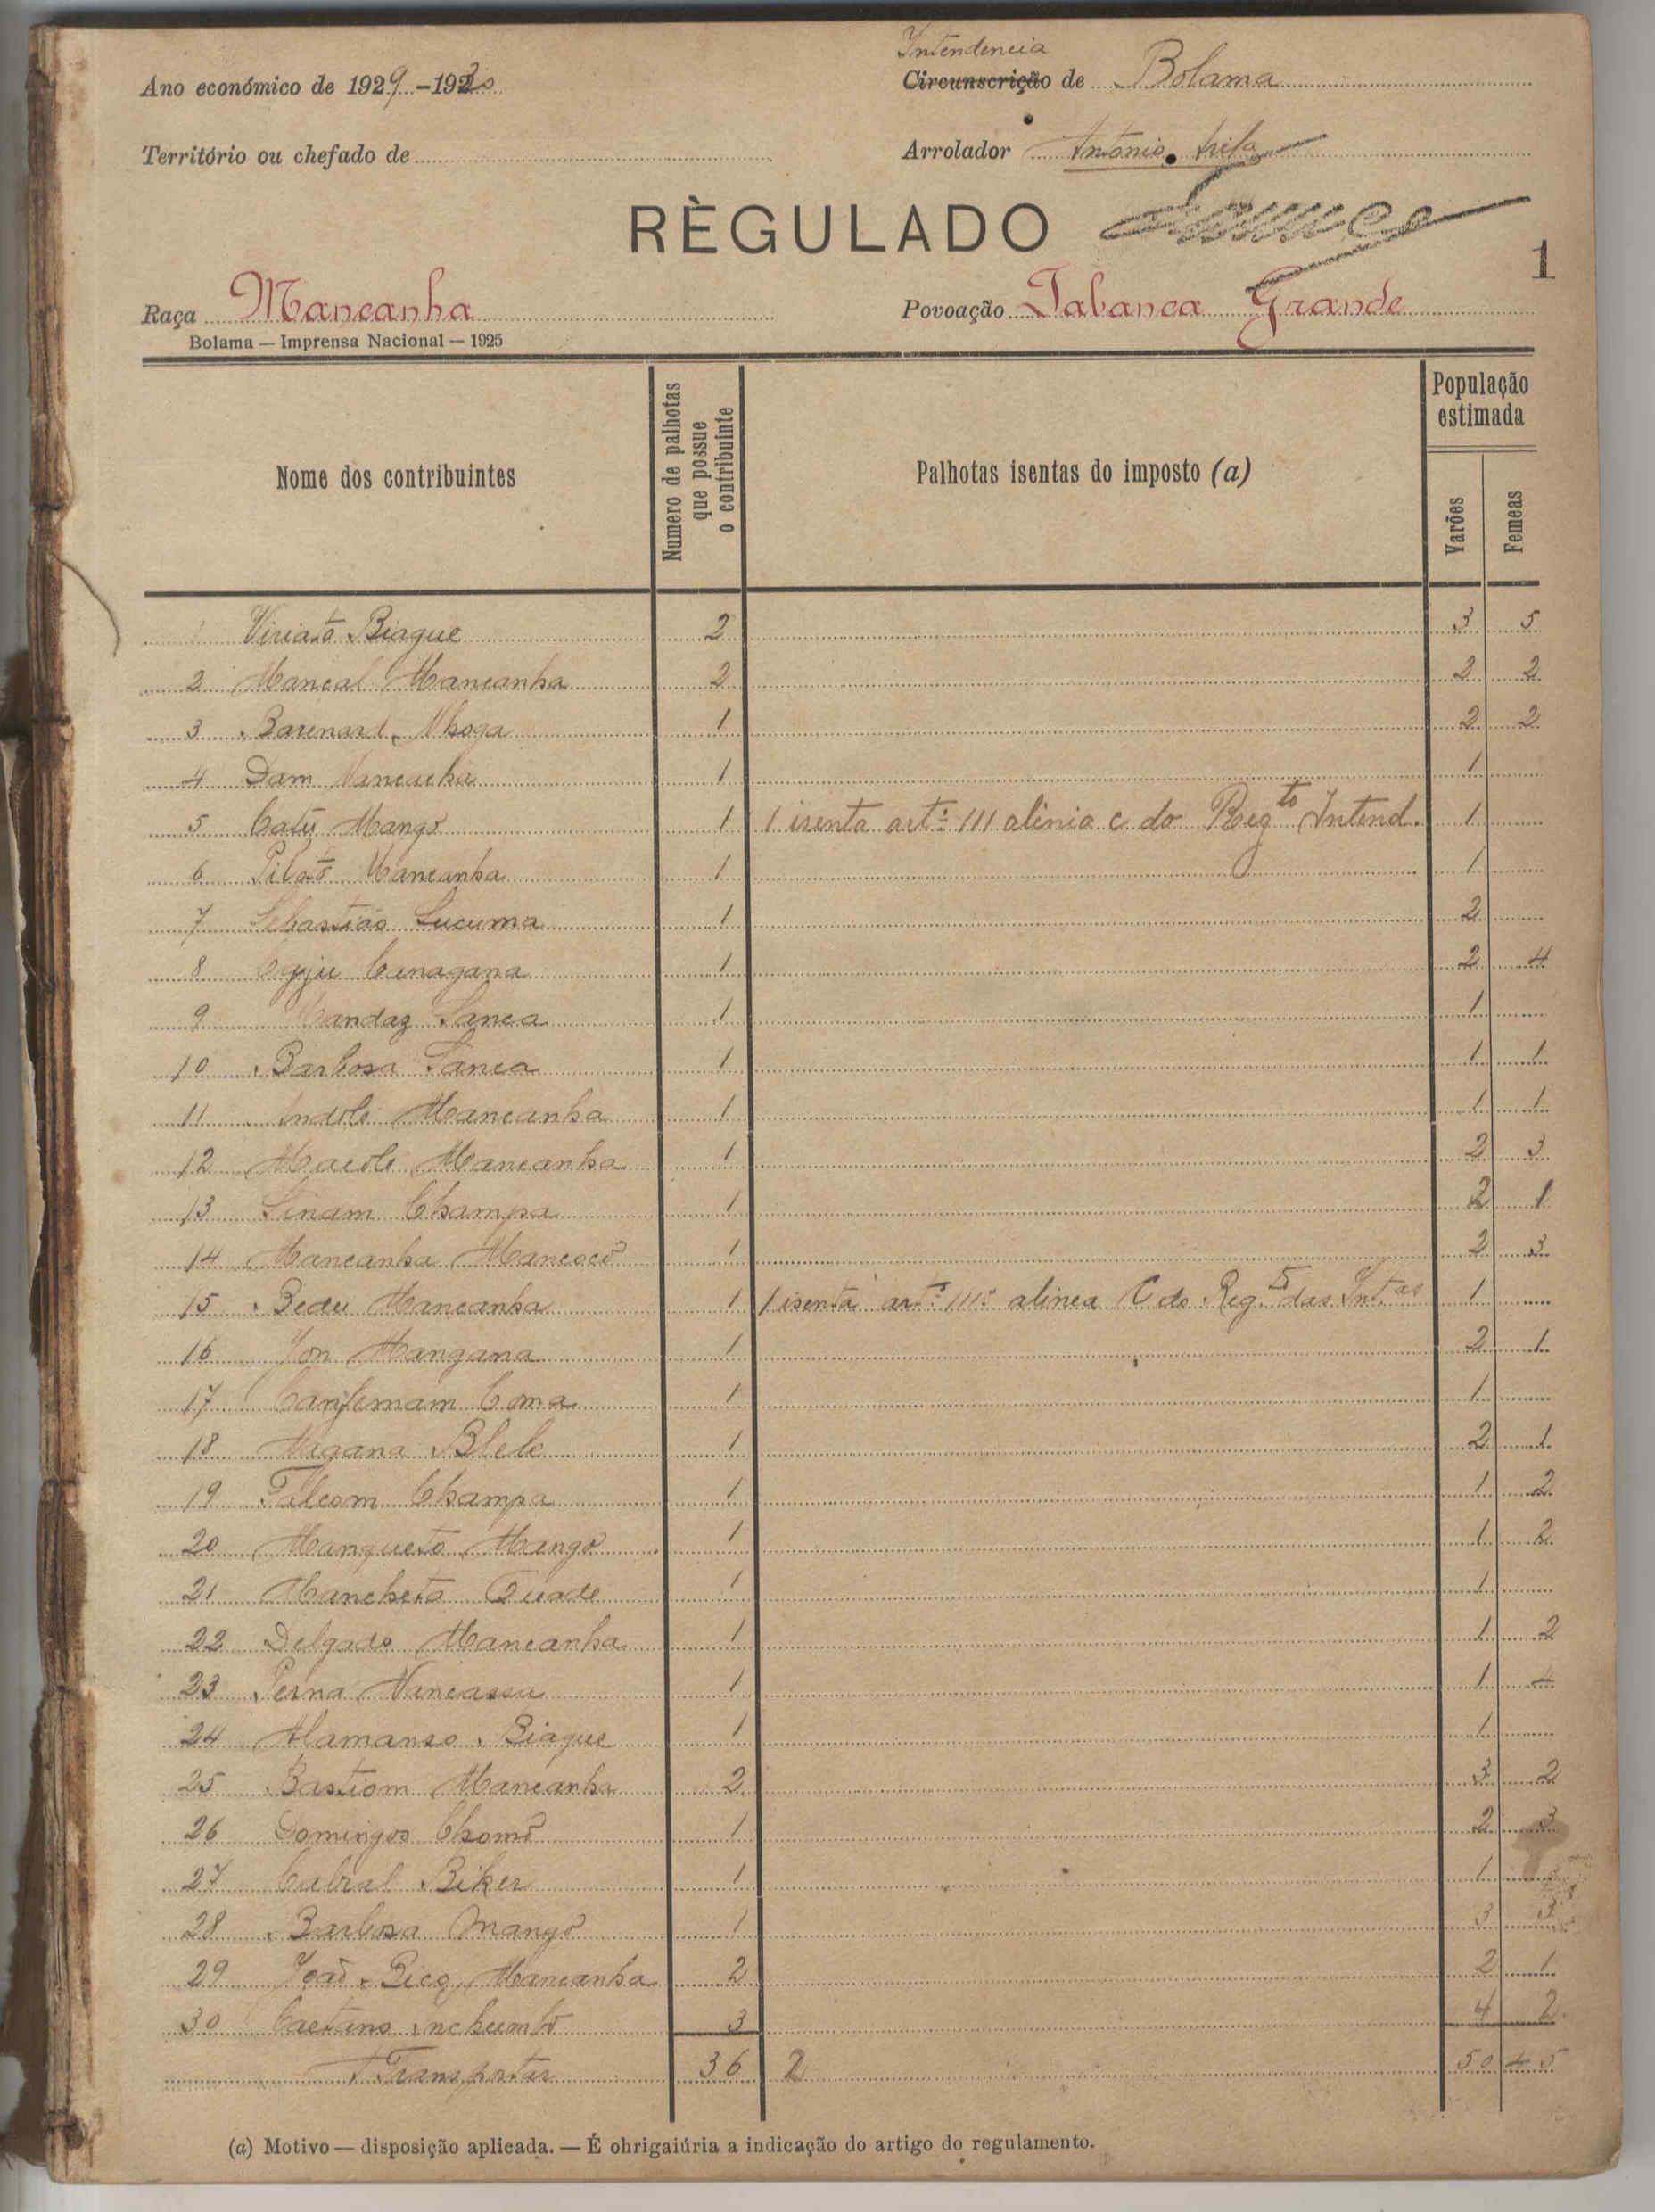 Intendencia
Ano económico de 1929-1930 Circunscrição de Bolama
Território ou chefado de Arrolador António
RÈGULADO
1
Raça Mancanha Povoação Tabanca Grande
Bolama — Imprensa Nacional — 1925
Nome dos contribuintes
Numero de palhotas que possue o contribuinte
Palhotas isentas do imposto (a)
População estimada
Varões
Femeas
1 Viriato Biague 2 3 5
2 Mancal Mancanha 2 2 2
3 1 2 2
4 Dam 1 1
5 Catu Mango 1 1 isenta artº 111 alinia c do Regto Intend. 1
6 Pilato Mancanha 1 1
7 Sebastião Lucuma 1 2
8 1 2 4
9 Lanca 1 1
10 Barbosa Lanca 1 1 1
11 Mancanha 1 1 1
12 Mancanha 1 2 3
13 Champa 1 2 1
14 Mancanha Mancocó 1 2 3
15 Bedu Mancanha 1 1 isenta artº 111º alinea C do Reg.to das Int.as 1
16 Jon Mangana 1 2 1
17 1 1
18 Blele 1 2 1
19 Champa 1 1 2
20 Manqueto Mango 1 1 2
21 Mancheta Quade 1 1
22 Delgado Mancanha 1 1 2
23 Perna 1 1
24 Biague 1 1
25 Bastiom Mancanha 2 3 2
26 Domingos Chomó 1 2 3
27 Cabral Biker 1 1
28 Barbosa Mangó 1 3 3
29 João Bico Mancanha 2 2 1
30 Caetano 3 4 2
A Transportar 36 2 50 45
(a) Motivo — disposição aplicada. — É obrigaiúria a indicação do artigo do regulamento.